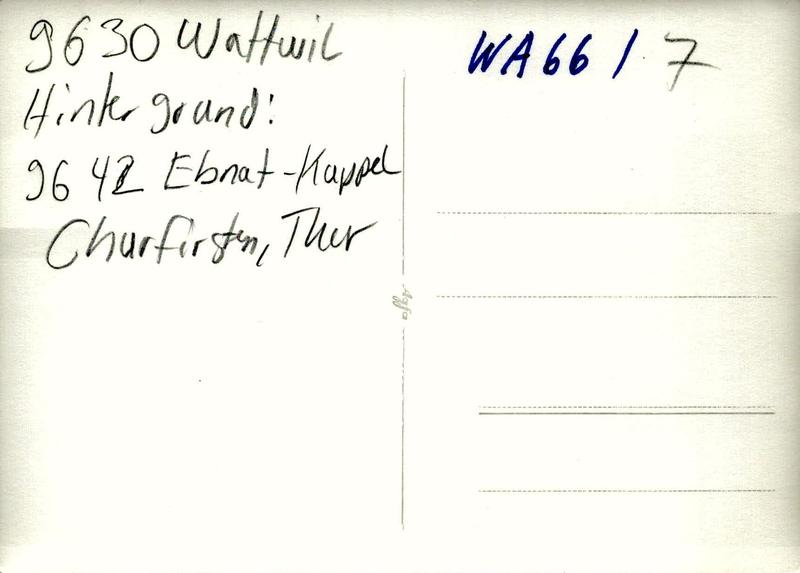 9630 Wattwil
Hintergrund:
9642 Ebnat-Kappel
Churfirsten, Thur
WA66 / 7
Agfa